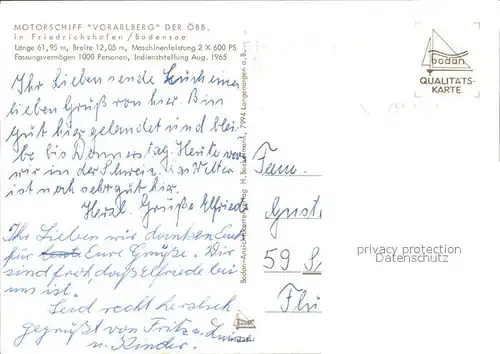 MOTORSCHIFF "VORARLBERG" DER ÖBB.
in Friedrichshafen/Bodensee
Länge 61,95 m, Breite 12,05 m, Maschinenleistung 2 X 600 PS
Fassungsvermögen 1000 Personen, Indienststellung Aug. 1965
Ihr Lieben sende Euch einen
lieben Gruß von hier Bin
gut hier gelandet und blei-
be bis Donnerstag. Heute war
wir in der Schweiz. Wetter
ist noch sehr gut hier.
Herzl. Grüße Elfriede
Ihr Lieben wir danken Euch
für Eure Grüße. Wir
sind froh, daß Elfriede bei
uns ist.
Seid recht herzlich
gegrüßt von Fritz u.
u. Kinder.
Bodan-Ansichtskartenverlag H. Bockelmann, 7994 Langenargen a. B
bodan
QUALITÄTS-
KARTE
Fam.
Gust
59 S
Flu
privacy protection
Datenschutz